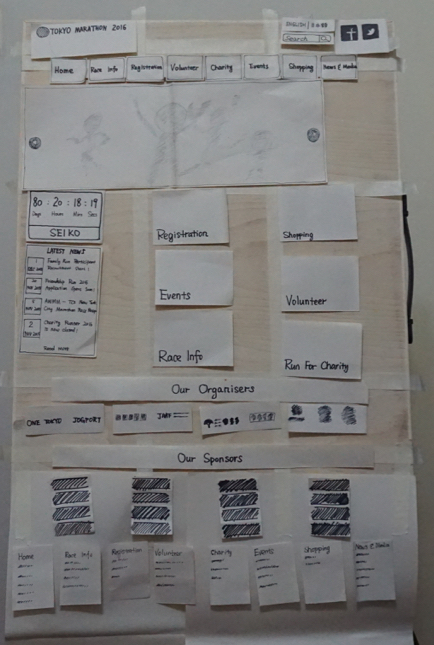 TOKYO MARATHON 2016
ENGLISH /
Search
Home Race Info Registration Volunteer Charity Events Shopping News & Media
80 : 20 : 18 : 19
Days Hours Mins Secs
SEIKO
LATEST NEWS
Family Run Participant
Friendship Run 2016
Charity Runner 2016
is now closed!
Read more
Registration
Shopping
Events
Volunteer
Race Info
Run For Charity
Our Organisers
ONE TOKYO JOGPORT
Our Sponsors
Home Race Info Registration Volunteer Charity Events Shopping News & Media